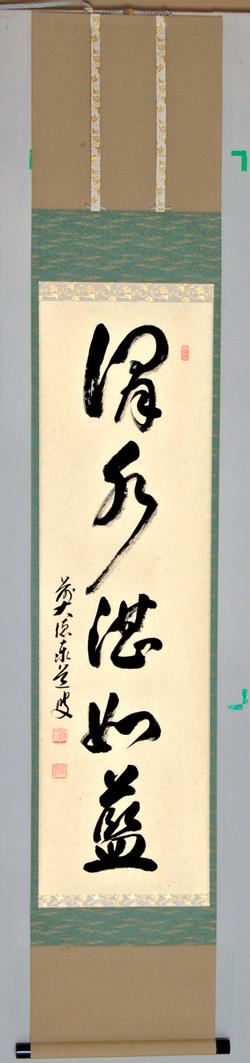 澗水湛如藍
前大徳泰道叟